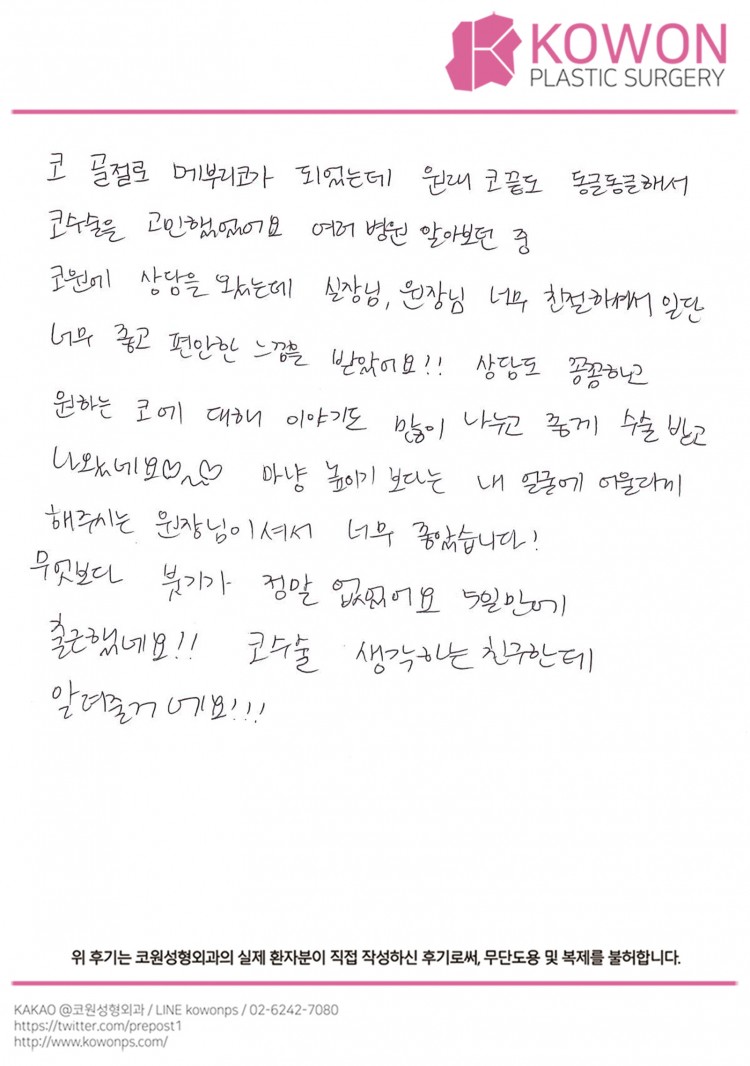 KOWON
PLASTIC SURGERY
코 골절로 메부리코가 되었는데 원래 코끝도 동글동글해서
코수술을 고민했었어요 여러 병원 알아보던 중
코원에 상담을 왔는데 실장님, 원장님 너무 친절하셔서 일단
너무 좋고 편안한 느낌을 받았어요!! 상담도 꼼꼼하고
원하는 코에 대해 이야기도 많이 나누고 좋게 수술 받고
나왔네요♡~♡ 마냥 높이기 보다는 내 얼굴에 어울리게
해주시는 원장님이셔서 너무 좋았습니다!
무엇보다 붓기가 정말 없었어요 5일만에
출근했네요!! 코수술 생각하는 친구한테
알려줄거네요!!!
위 후기는 코원성형외과의 실제 환자분이 직접 작성하신 후기로써, 무단도용 및 복제를 불허합니다.
KAKAO @코원성형외과 / LINE kowonps / 02-6242-7080
https://twitter.com/prepost1
http://www.kowonps.com/